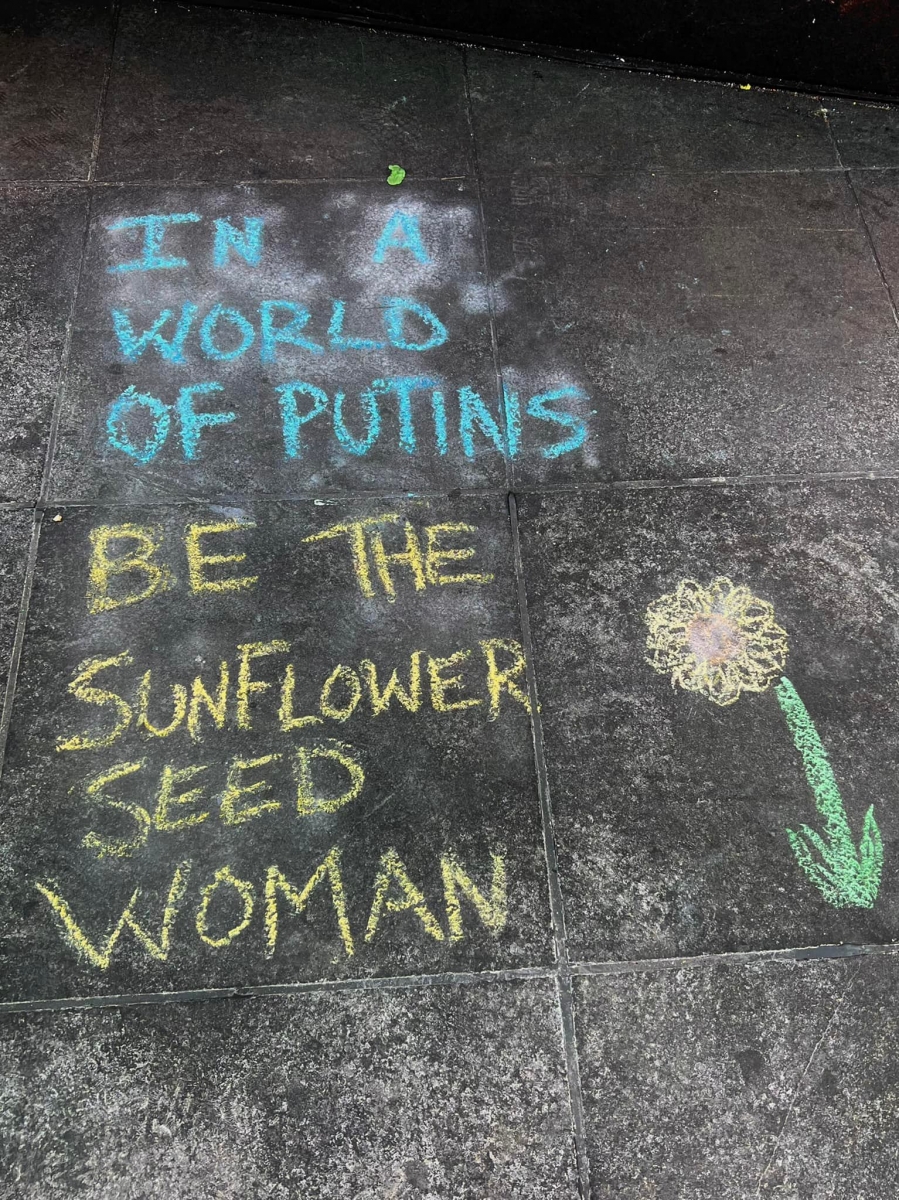 IN A
WORLD
OF PUTINS
BE THE
SUNFLOWER
SEED
WOMAN